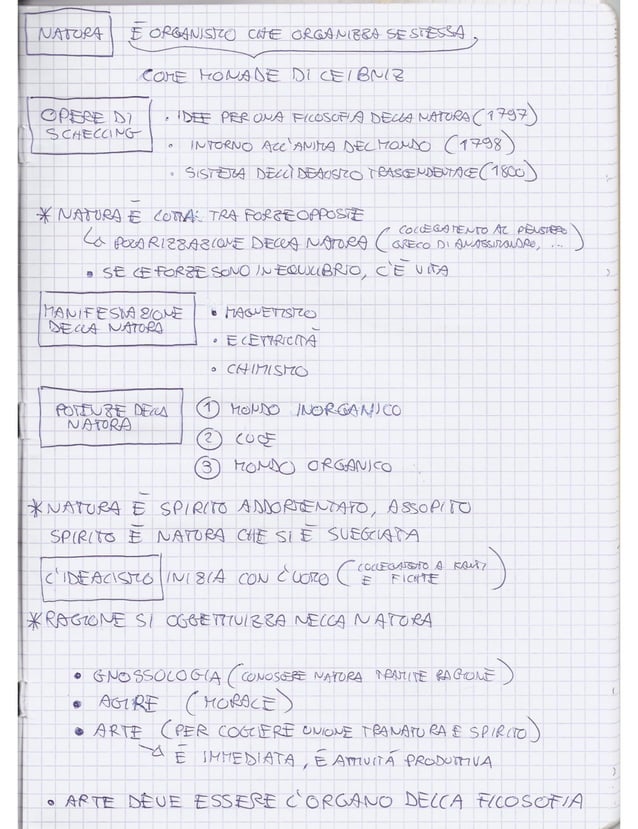 NATURA È ORGANISMO CHE ORGANIZZA SE STESSA,
COME MONADE DI LEIBNIZ
OPERE DI SCHELLING
• IDEE PER UNA FILOSOFIA DELLA NATURA (1797)
• INTORNO ALL'ANIMA DEL MONDO (1798)
• SISTEMA DELL'IDEALISMO TRASCENDENTALE (1800)
* NATURA È LOTTA TRA FORZE OPPOSTE
↳ POLARIZZAZIONE DELLA NATURA (COLLEGAMENTO AL PENSIERO GRECO DI ANASSIMANDRO, ...)
• SE LE FORZE SONO IN EQUILIBRIO, C'È VITA
MANIFESTAZIONE DELLA NATURA
• MAGNETISMO
• ELETTRICITÀ
• CHIMISMO
POTENZE DELLA NATURA
① MONDO INORGANICO
② LUCE
③ MONDO ORGANICO
* NATURA È SPIRITO ADDORMENTATO, ASSOPITO
SPIRITO È NATURA CHE SI È SVEGLIATA
L'IDEALISMO INIZIA CON L'UOMO (COLLEGAMENTO A KANT E FICHTE)
* RAGIONE SI OGGETTIVIZZA NELLA NATURA
• GNOSSOLOGIA (CONOSCERE NATURA TRAMITE RAGIONE)
• AGIRE (MORALE)
• ARTE (PER COGLIERE UNIONE TRA NATURA E SPIRITO)
↳ È IMMEDIATA, È ATTIVITÀ PRODUTTIVA
• ARTE DEVE ESSERE L'ORGANO DELLA FILOSOFIA